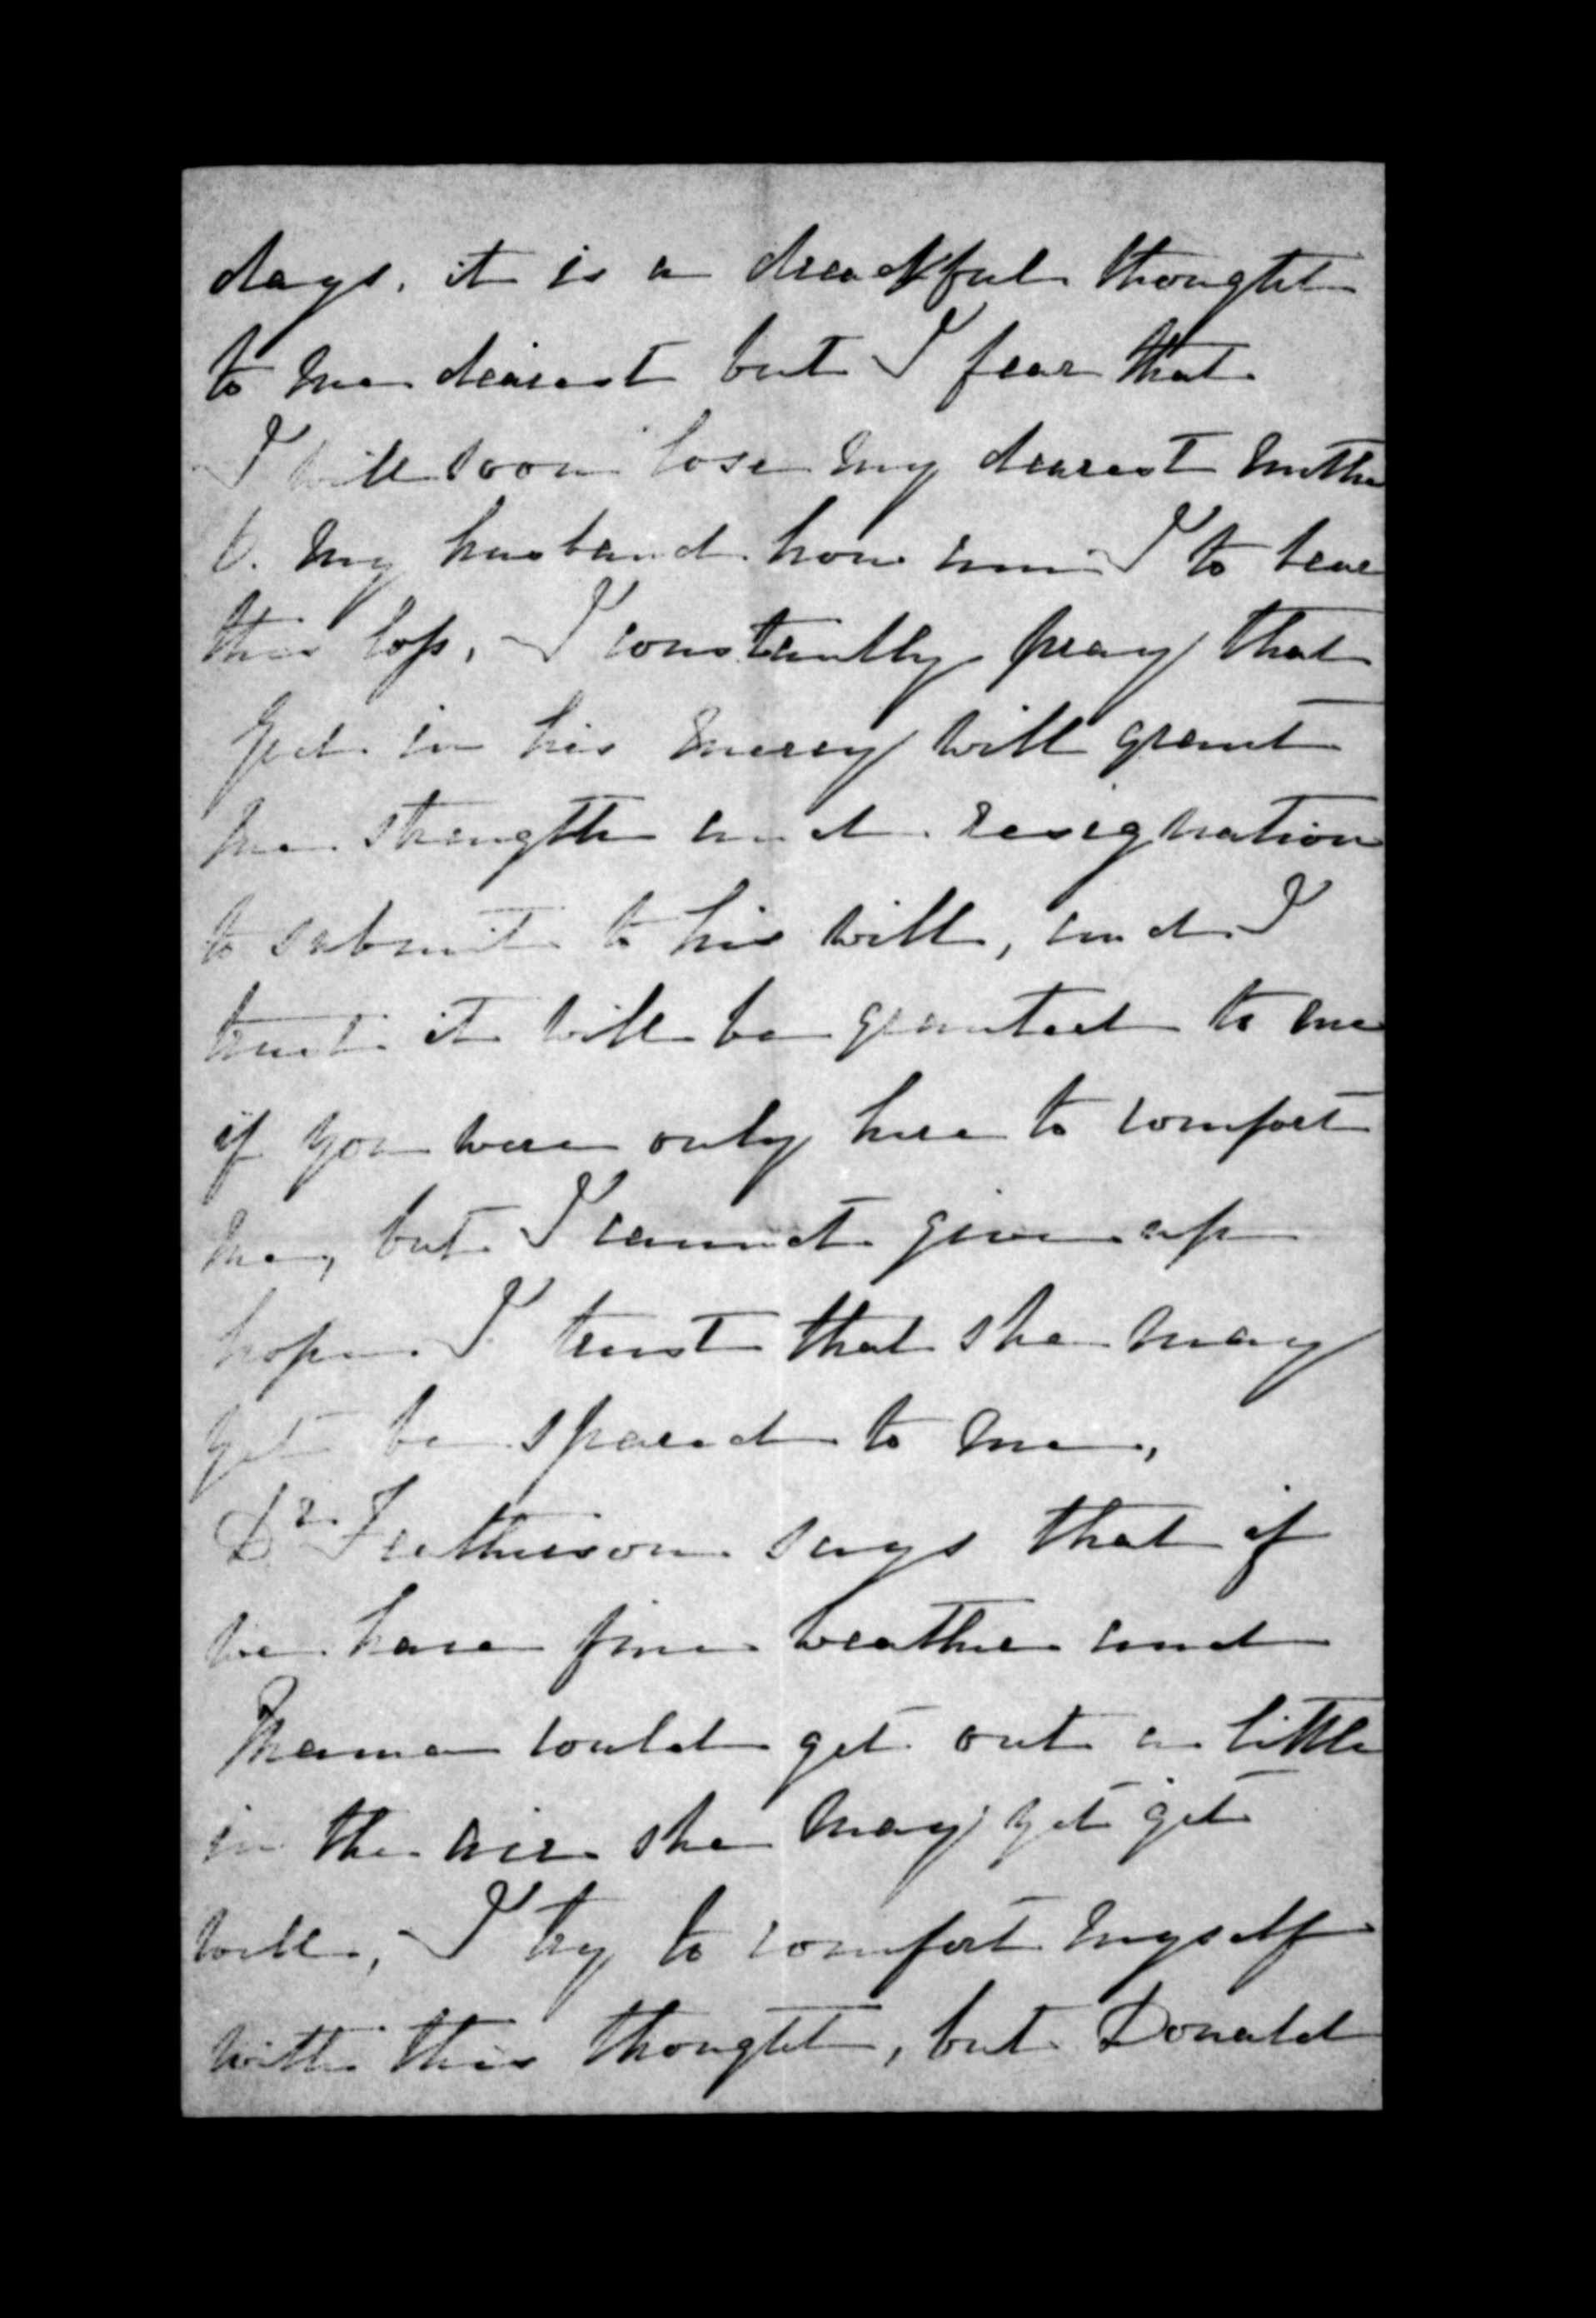 days. it is a dreadful thought
to me dearest but I fear that
I will soon lose my dearest mother
O. my husband how am I to bear
this loss, I constantly pray that
God in his mercy will grant
me strength and resignation
to submit to his will, and I
trust it will be granted to me
if you were only here to comfort
me, but I cannot give up
hope I trust that she may
yet be spared to me,
Dr. says that if
we have fine weather and
Mama could get out a little
in the air she may yet get
well, I try to comfort myself
with this thought, but Donald